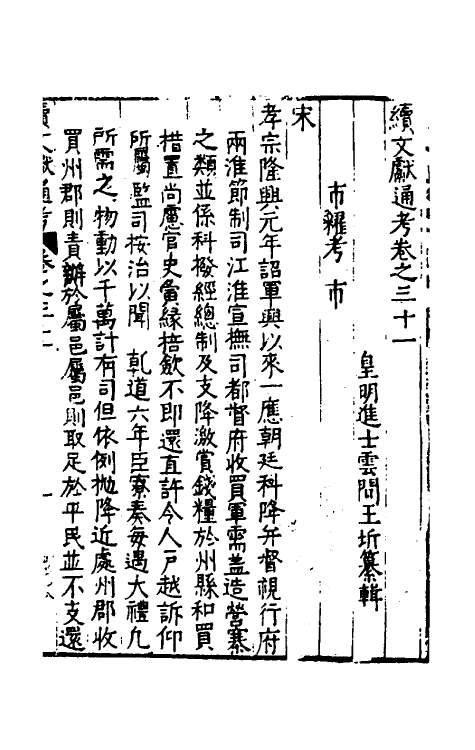 續文獻通考卷之三十一
皇明進士雲間王圻纂輯
市糴考 市
宋
孝宗隆興元年詔軍興以來一應朝廷科降并督視行府
兩淮節制司江淮宣撫司都督府收買軍需蓋造營寨
之類並係科撥經總制及支降激賞錢糧於州縣和買
措置尚慮官吏夤緣掊斂不即還直許令人戶越訴仰
所屬監司按治以聞 乹道六年臣寮奏每遇大禮凢
所需之物動以千萬計有司但依例拋降近處州郡收
買州郡則責辦於屬邑屬邑則取足於平民並不支還
續文獻通考 卷之三十一